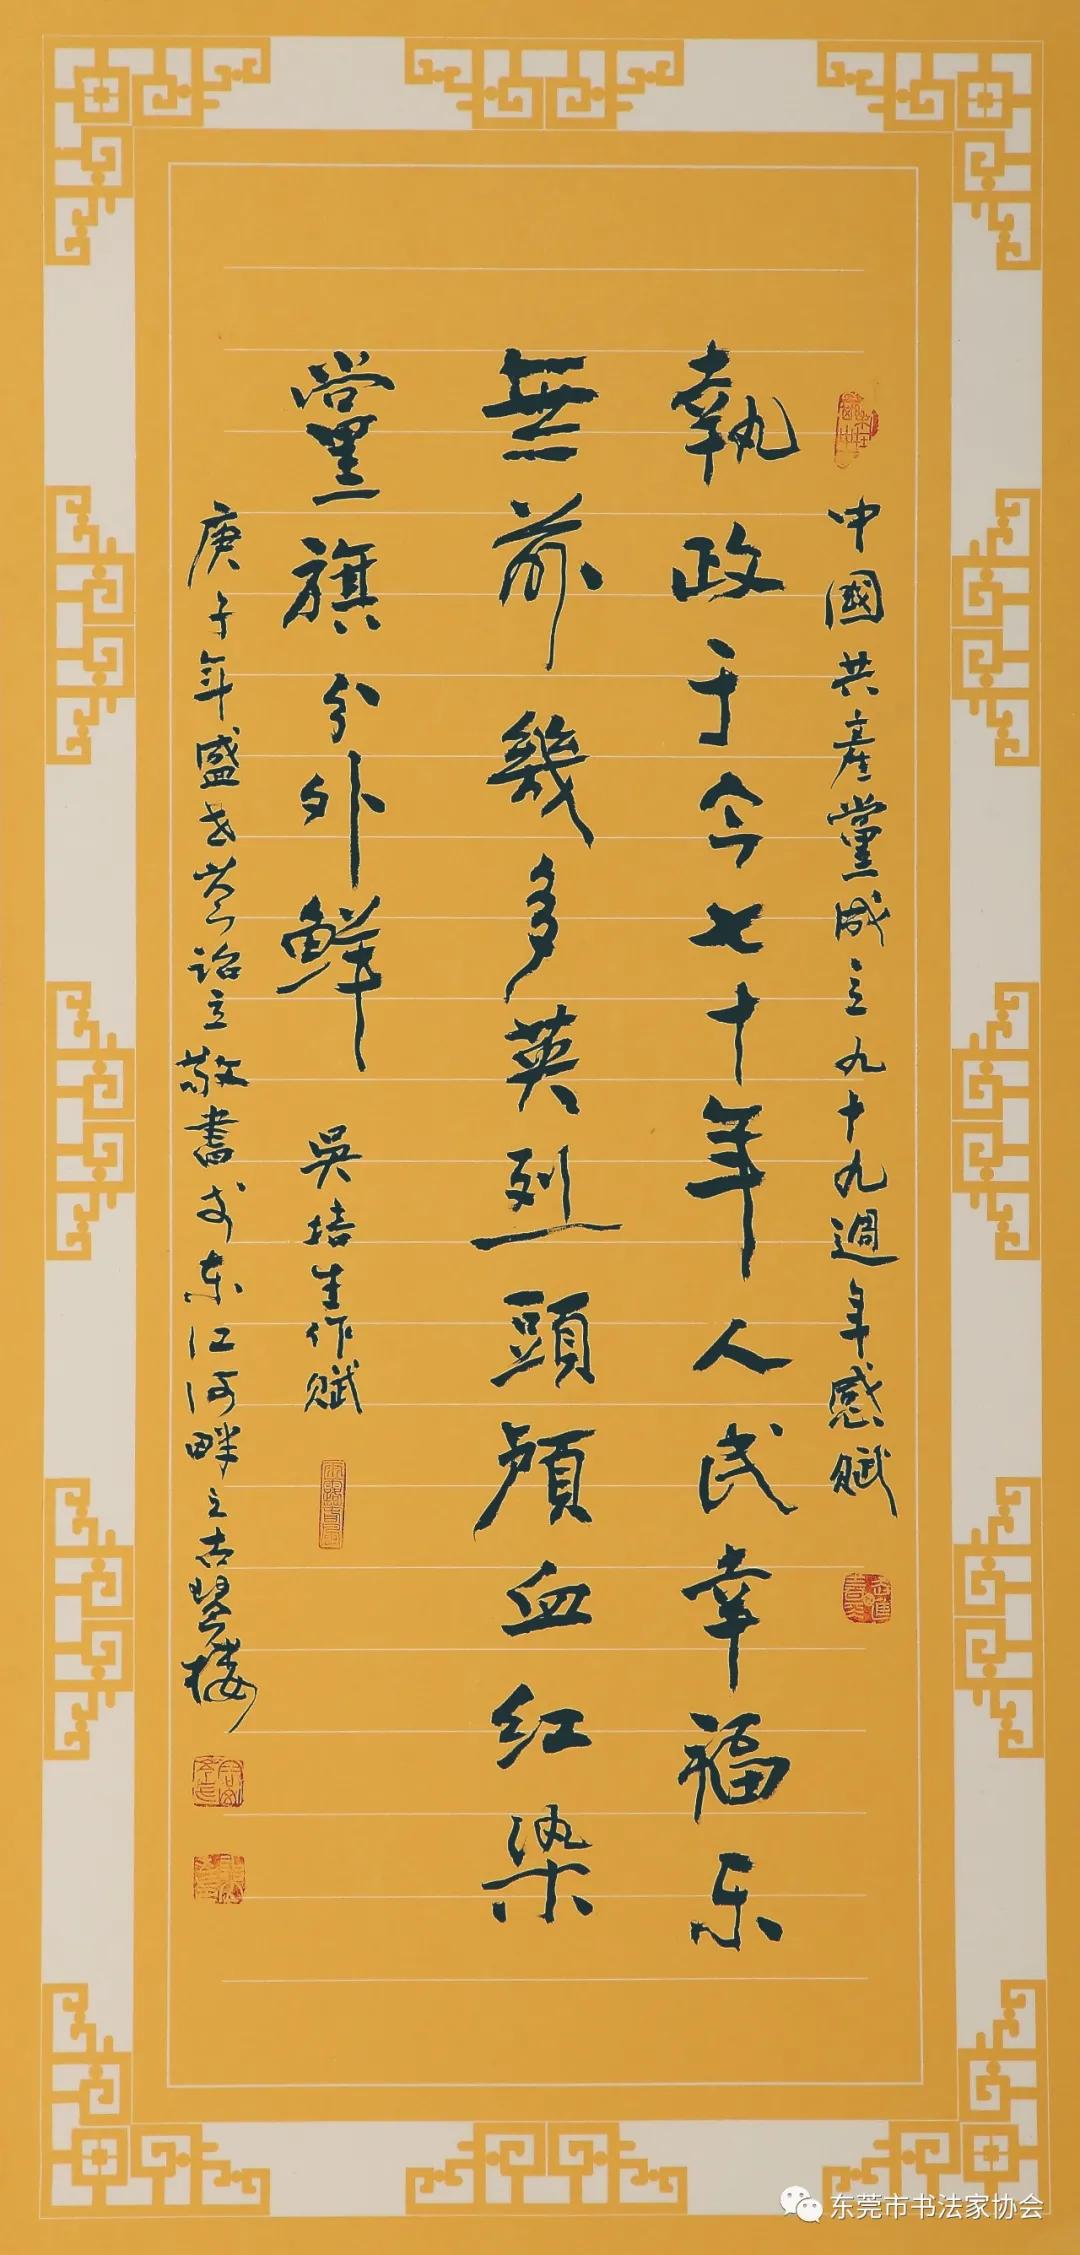 中國共產黨成立九十九週年感赋
執政于今七十年人民幸福乐
無前幾多英烈頭顱血红染
黨旗分外鮮
吳培生作赋
庚子年盛世黃詔立敬書於东江河畔之古琴楼
东莞市书法家协会